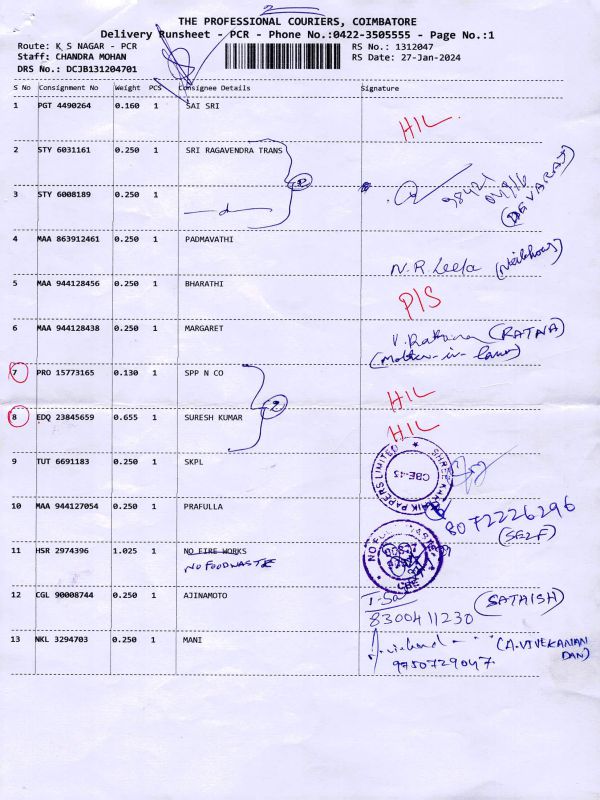 2
THE PROFESSIONAL COURIERS, COIMBATORE
Delivery Runsheet - PCR - Phone No.:0422-3505555 - Page No.:1
Route: K S NAGAR - PCR
RS No.: 1312047
Staff: CHANDRA MOHAN
RS Date: 27-Jan-2024
DRS No.: DCJB131204701
S No Consignment No Weight PCS Consignee Details Signature
1 PGT 4490264 0.160 1 SAI SRI
HIL
2 STY 6031161 0.250 1 SRI RAGAVENDRA TRANS
2
98421
(DEVARAJ)
3 STY 6008189 0.250 1
4 MAA 863912461 0.250 1 PADMAVATHI
N.R. Leela (Neibhour)
5 MAA 944128456 0.250 1 BHARATHI
P/S
6 MAA 944128438 0.250 1 MARGARET
V. Ratna (RATNA)
(Mother-in-law)
7 PRO 15773165 0.130 1 SPP N CO
2
HIL
8 EDQ 23845659 0.655 1 SURESH KUMAR
HIL
9 TUT 6691183 0.250 1 SKPL
PAPERS LIMITED ★ SHREE
CBE-43
10 MAA 944127054 0.250 1 PRAFULLA
8072226296
(SELF)
11 HSR 2974396 1.025 1 NO FIRE WORKS
NO FOOD WASTE
NO FOOD WASTE
12 CGL 90008744 0.250 1 AJINAMOTO
(SATHISH)
8300411230
13 NKL 3294703 0.250 1 MANI
(A.VIVEKANAN
DAN)
9750729047